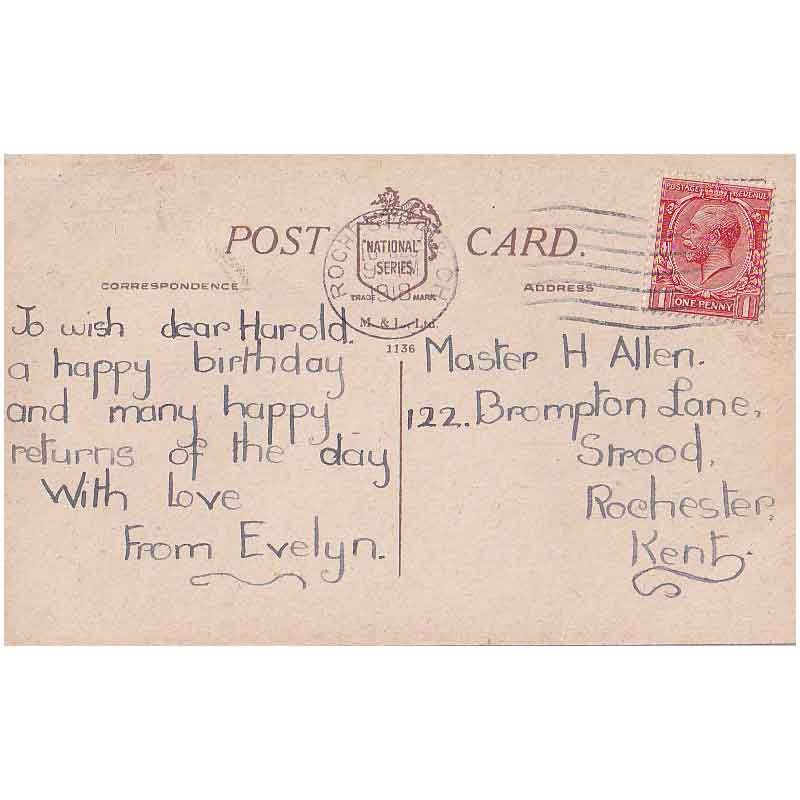 POST CARD.
"NATIONAL"
SERIES
TRADE MARK
M. & L., Ltd.
1136
CORRESPONDENCE
To wish dear Harold.
a happy birthday
and many happy
returns of the day
With Love
From Evelyn.
ADDRESS
POSTAGE REVENUE
1 ONE PENNY 1
Master H Allen.
122. Brompton Lane,
Strood,
Rochester,
Kent.